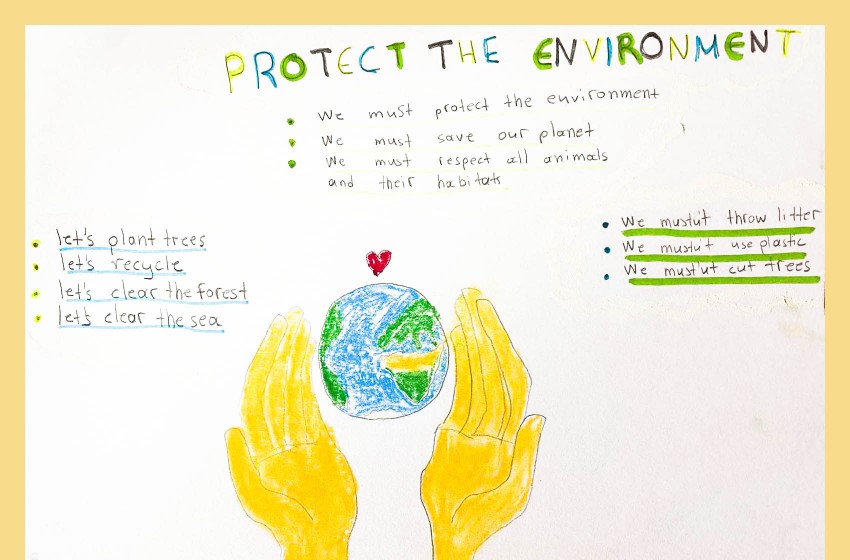 PROTECT THE ENVIRONMENT
We must protect the environment
We must save our planet
We must respect all animals
and their habitats
let's plant trees
let's recycle
let's clear the forest
let's clear the sea
We mustu't throw litter
We mustu't use plastic
We must'ut cut trees